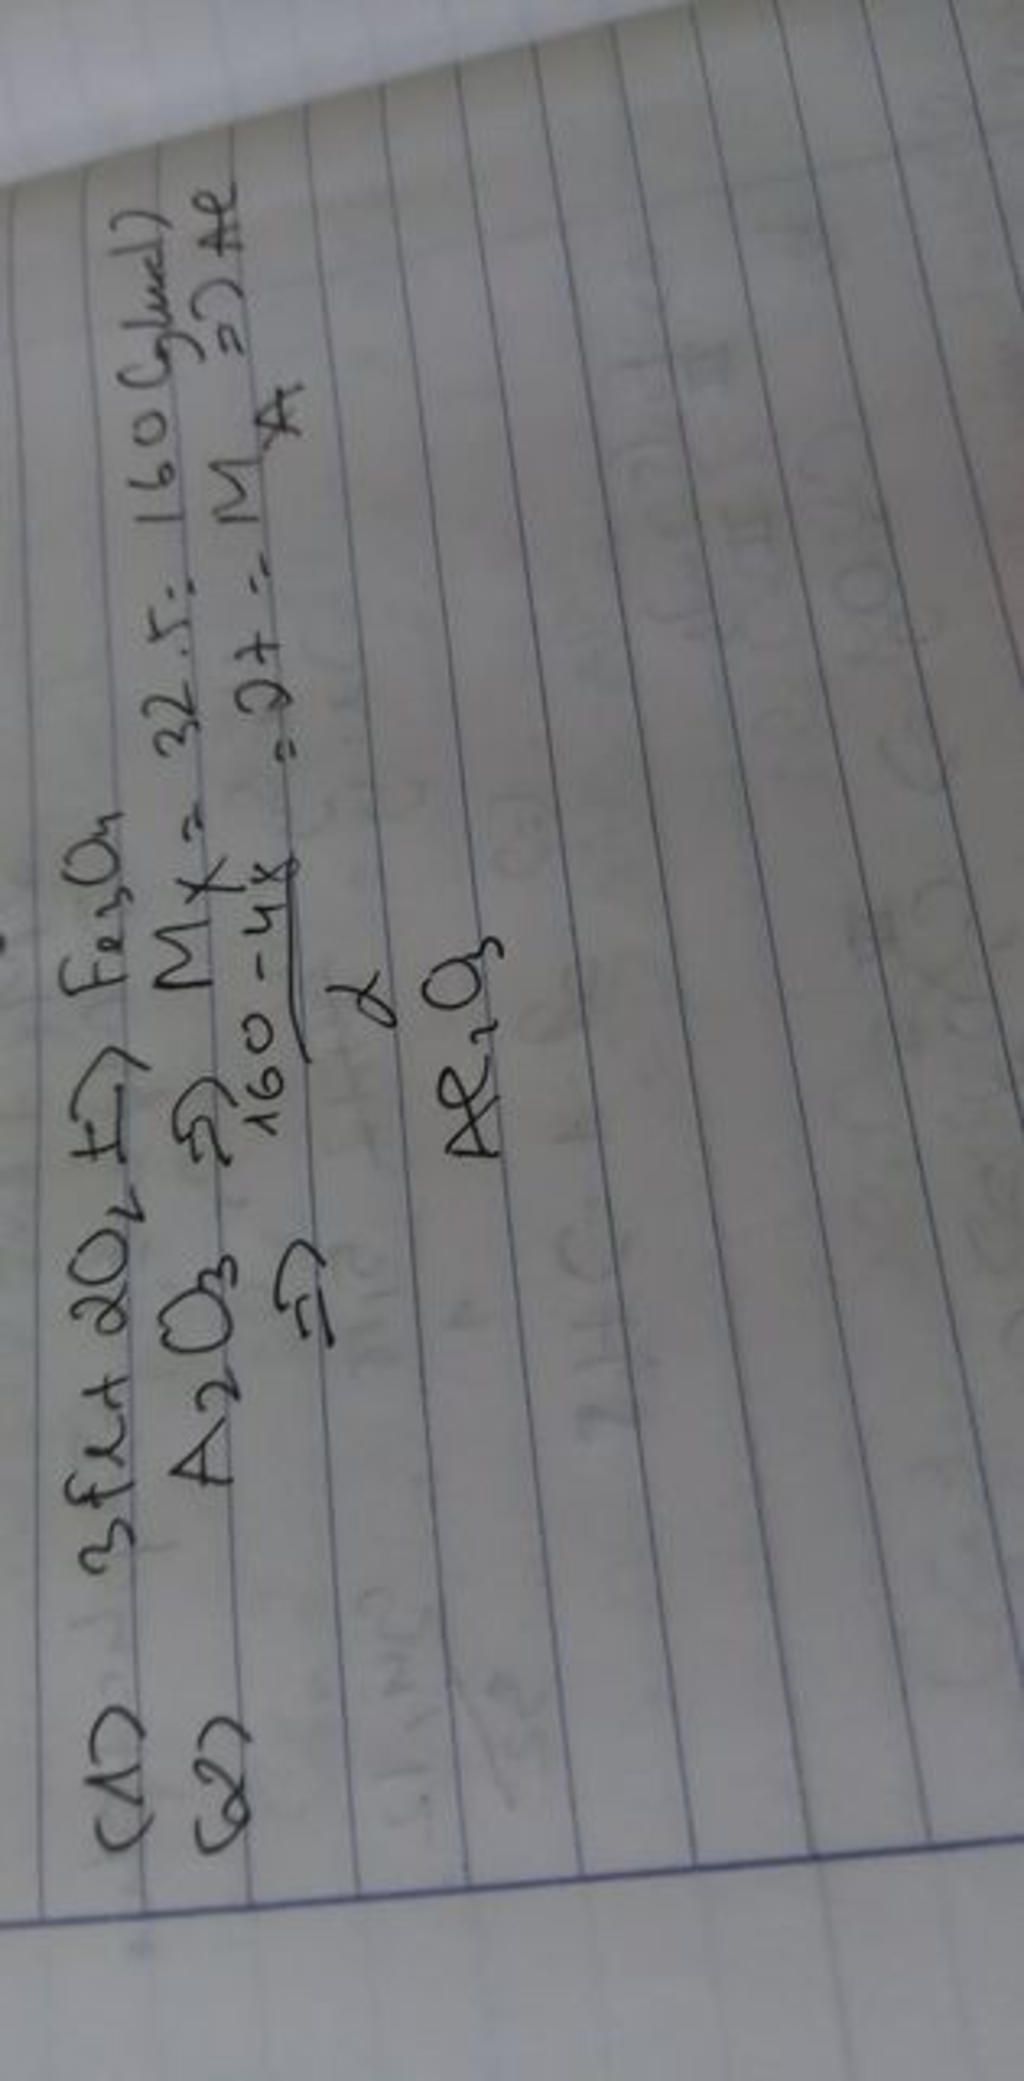 (1) 3Fe + 2O2 => Fe3O4
(2) A2O3 => Mx = 32.5 = 160 (g/mol)
=> 160 - 48 / 2 = 27 = MA => Al
Al2O3